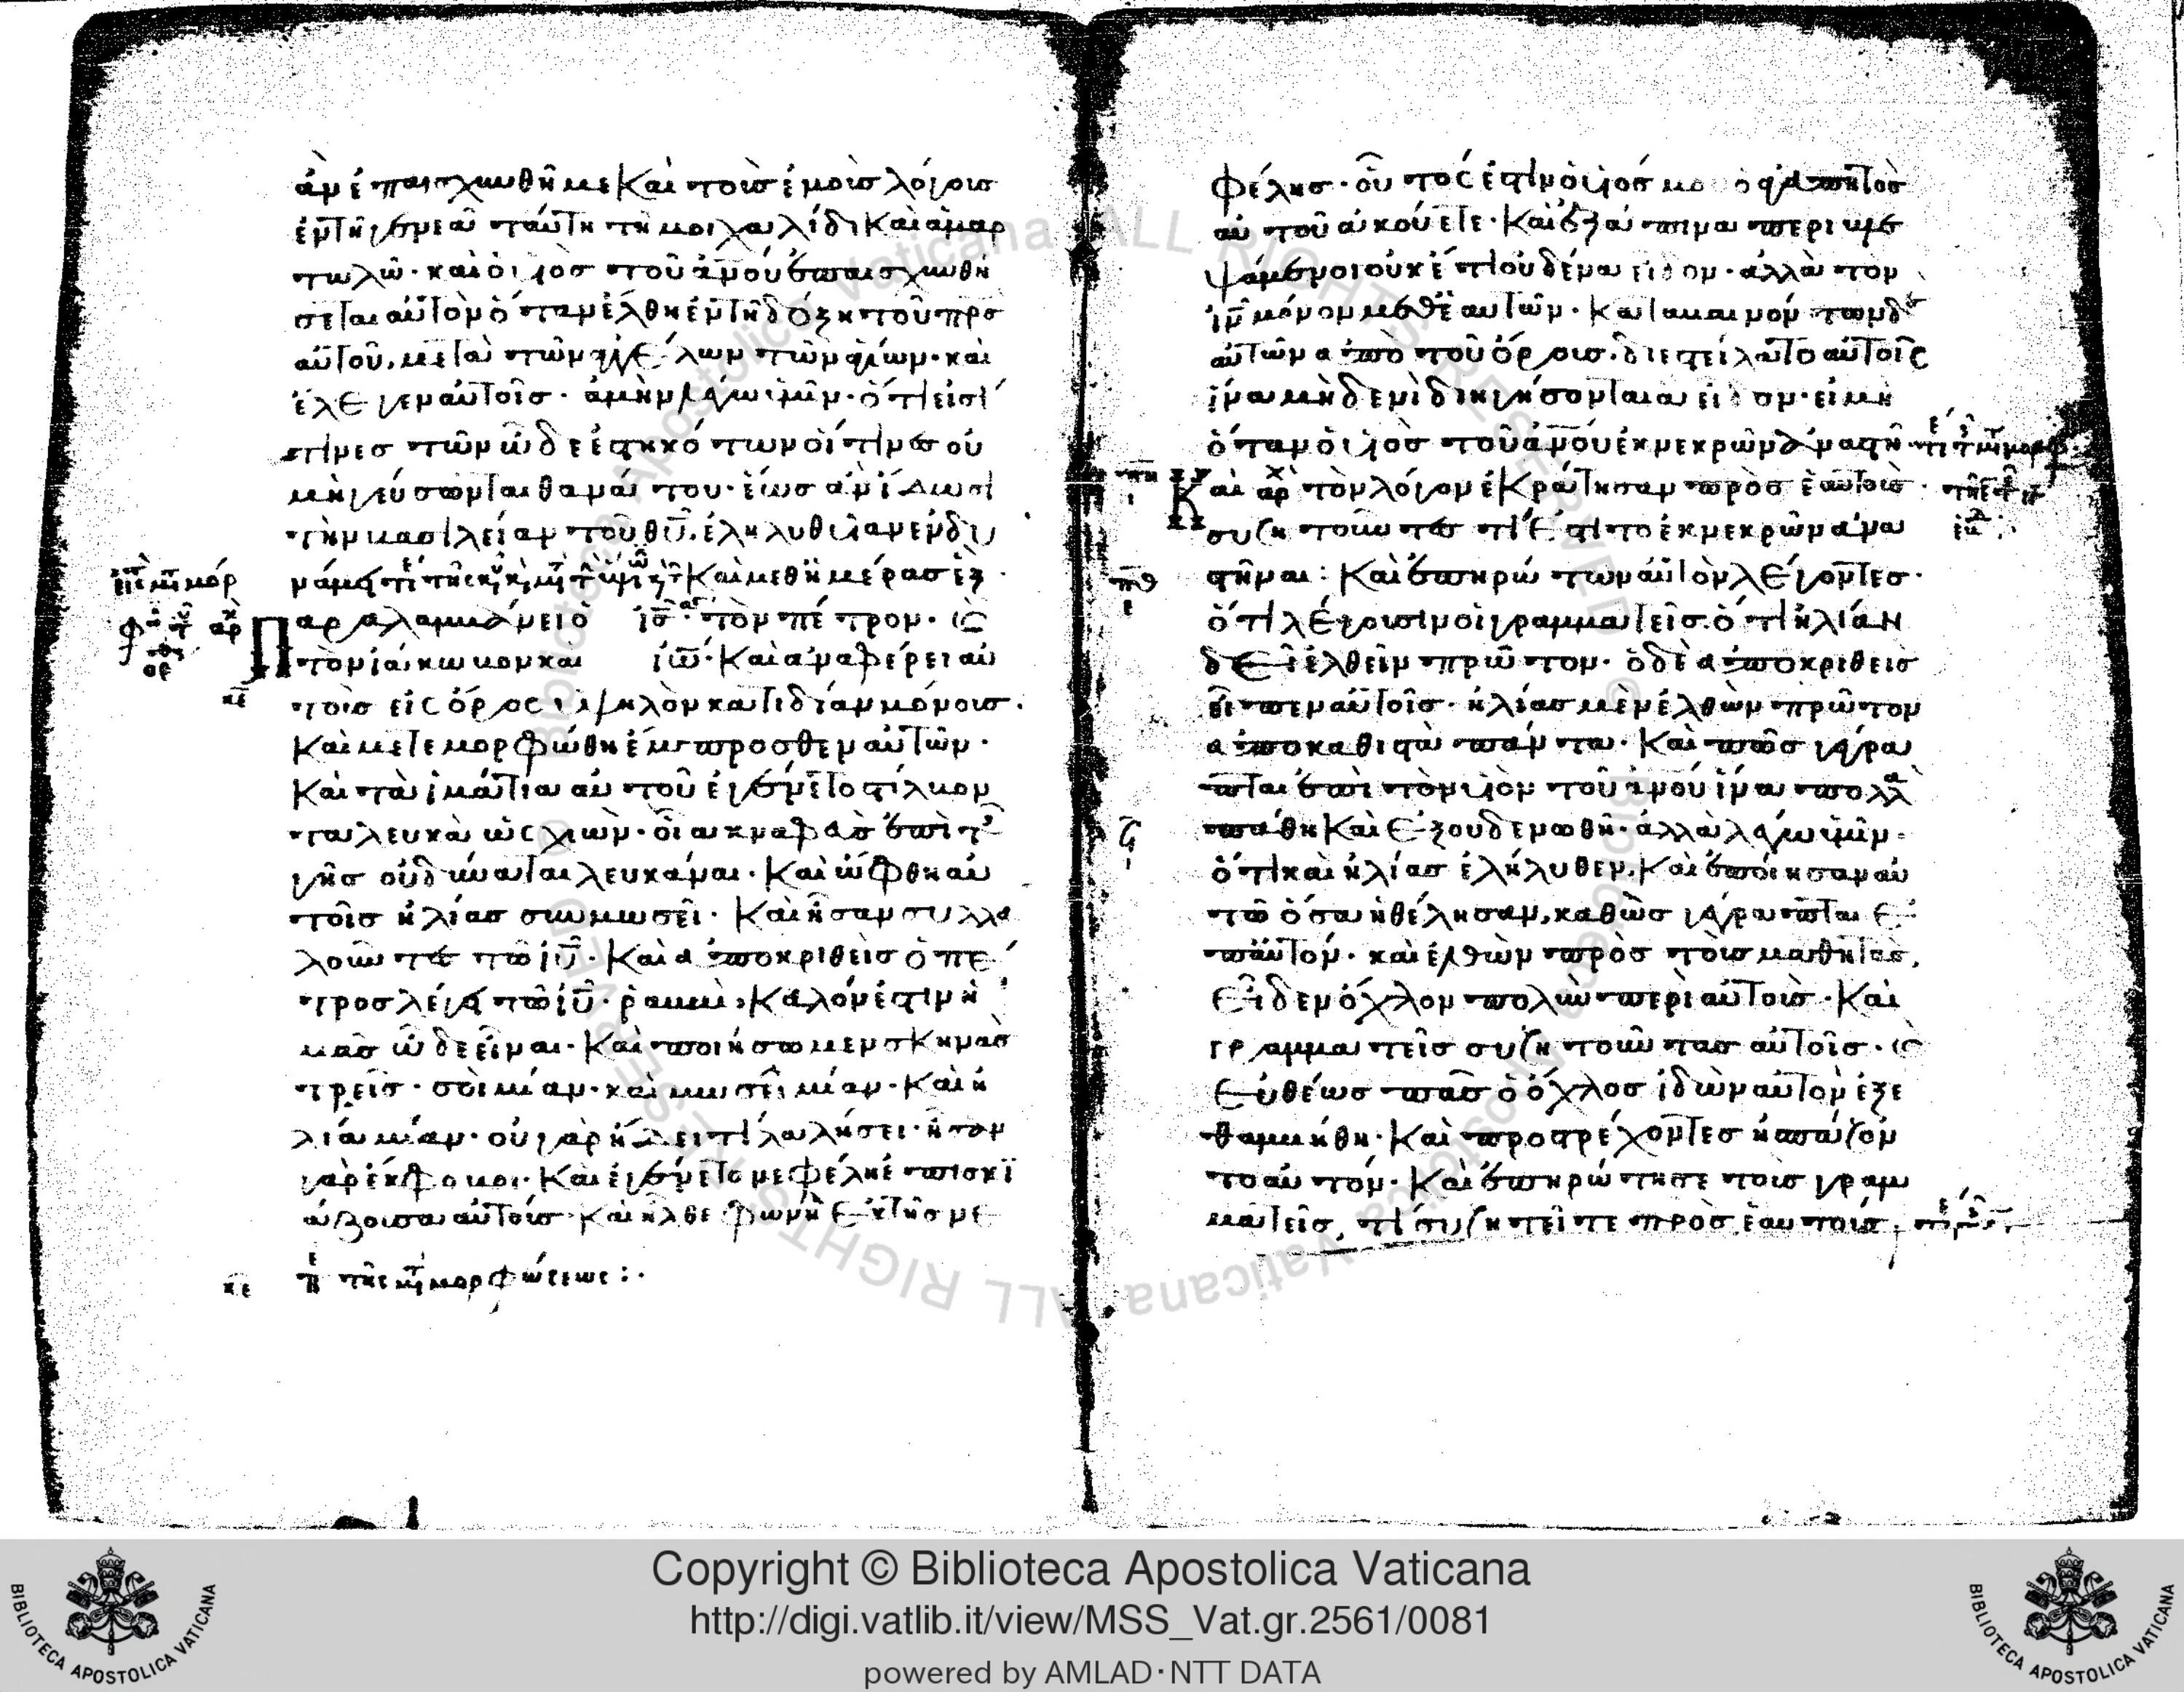 ἂν ἐπαισχυνθῆ με καὶ τοὺς ἐμοὺς λόγους
ἐν τῆ γενεᾶ ταύτη τῆ μοιχαλίδι καὶ ἁμαρ
τωλῶ· καὶ ὁ υἱὸς τοῦ ἀνου ἐπαισχυνθή
σεται αὐτὸν ὅταν ἔλθη ἐν τῆ δόξη τοῦ πρσ
αὐτοῦ, μετὰ τῶν ἀγγέλων τῶν ἁγίων· καὶ
ἔλεγεν αὐτοῖς· ἀμὴν λέγω ὑμῖν· ὅτι εἰσί
τινες τῶν ὧδε ἑστηκότων οἵτινες οὐ
μὴ γεύσωνται θανάτου· ἕως ἂν ἴδωσι
τὴν βασιλείαν τοῦ θυ, ἐληλυθυῖαν ἐν δυ
νάμει καὶ μεθ ἡμέρας ἓξ
παραλαμβάνει ὁ ις τὸν πέτρον·
τὸν ἰάκωβον καὶ ἰω· καὶ ἀναφέρει αὐ
τοὺς εἰς ὄρος ὑψηλὸν κατιδίαν μόνους·
καὶ μετεμορφώθη ἔμπροσθεν αὐτῶν·
καὶ τὰ ἱμάτια αὐτοῦ ἐγένετο στίλβον
τα λευκὰ ὡς χιών· οἷα κναφεὺς ἐπὶ τ
γῆς οὐ δύναται λευκᾶναι· καὶ ὤφθη αὐ
τοῖς ἠλίας σὺν μωσεῖ· καὶ ἦσαν συλλα
λοῦντες τῶ ιυ· καὶ ἀποκριθεὶς ὁ πέ
τρος λέγει τῶ ιυ· ῥαββὶ, καλόν ἐστιν ἡ
μᾶς ὧδε εἶναι· καὶ ποιήσωμεν σκηνὰς
τρεῖς· σοὶ μίαν· καὶ μωσεῖ μίαν· καὶ ἠ
λία μίαν· οὐ γὰρ ἤδει τί λαλήσει· ἦσαν
γὰρ ἔκφοβοι· καὶ ἐγένετο νεφέλη ἐπισκι
άζουσα αὐτοῖς· καὶ ἦλθε φωνὴ ἐκ τῆς νε
κε τῆς μεταμορφώσεως:·
φέλης· οὗτός ἐστιν ὁ υἱός μου ὁ ἀγαπητὸς
αὐτοῦ ἀκούετε· καὶ ἐξάπινα περιβλε
ψάμενοι οὐκέτι οὐδένα εἶδον· ἀλλὰ τὸν
ιν μόνον μεθ ἑαυτῶν· καταβαινόντων δὲ
αὐτῶν ἀπὸ τοῦ ὄρους· διεστείλατο αὐτοῖς
ἵνα μηδενὶ διηγήσονται ἃ εἶδον· εἰ μὴ
ὅταν ὁ υἱὸς τοῦ ἀνου ἐκ νεκρῶν ἀναστῆ
καὶ τὸν λόγον ἐκράτησαν πρὸς ἑαυτοὺς·
συζητοῦντες τί ἐστι τὸ ἐκ νεκρῶν ἀνα
στῆναι: καὶ ἐπηρώτων αὐτὸν λέγοντες·
ὅτι λέγουσιν οἱ γραμματεῖς· ὅτι ἠλίαν
δεῖ ἐλθεῖν πρῶτον· ὁ δὲ ἀποκριθεὶς
εἶπεν αὐτοῖς· ἠλίας μὲν ἐλθὼν πρῶτον
ἀποκαθιστᾶ πάντα· καὶ πῶς γέγρα
πται ἐπὶ τὸν υἱὸν τοῦ ἀνου ἵνα πολλὰ
πάθη καὶ ἐξουδενωθῆ· ἀλλὰ λέγω ὑμῖν·
ὅτι καὶ ἠλίας ἐλήλυθεν, καὶ ἐποίησαν αὐ
τῶ ὅσα ἠθέλησαν, καθὼς γέγραπται ἐ
παὐτόν· καὶ ἐλθὼν πρὸς τοὺς μαθητὰς,
εἶδεν ὄχλον πολὺν περὶ αὐτοὺς· καὶ
γραμματεῖς συζητοῦντας αὐτοῖς·
εὐθέως πᾶς ὁ ὄχλος ἰδὼν αὐτὸν ἐξε
θαμβήθη· καὶ προστρέχοντες ἠσπάζον
το αὐτόν· καὶ ἐπηρώτησε τοὺς γραμ
ματεῖς, τί συζητεῖτε πρὸς ἑαυτούς
Copyright © Biblioteca Apostolica Vaticana
http://digi.vatlib.it/view/MSS_Vat.gr.2561/0081
powered by AMLAD·NTT DATA
BIBLIOTECA APOSTOLICA VATICANA
BIBLIOTECA APOSTOLICA VATICANA